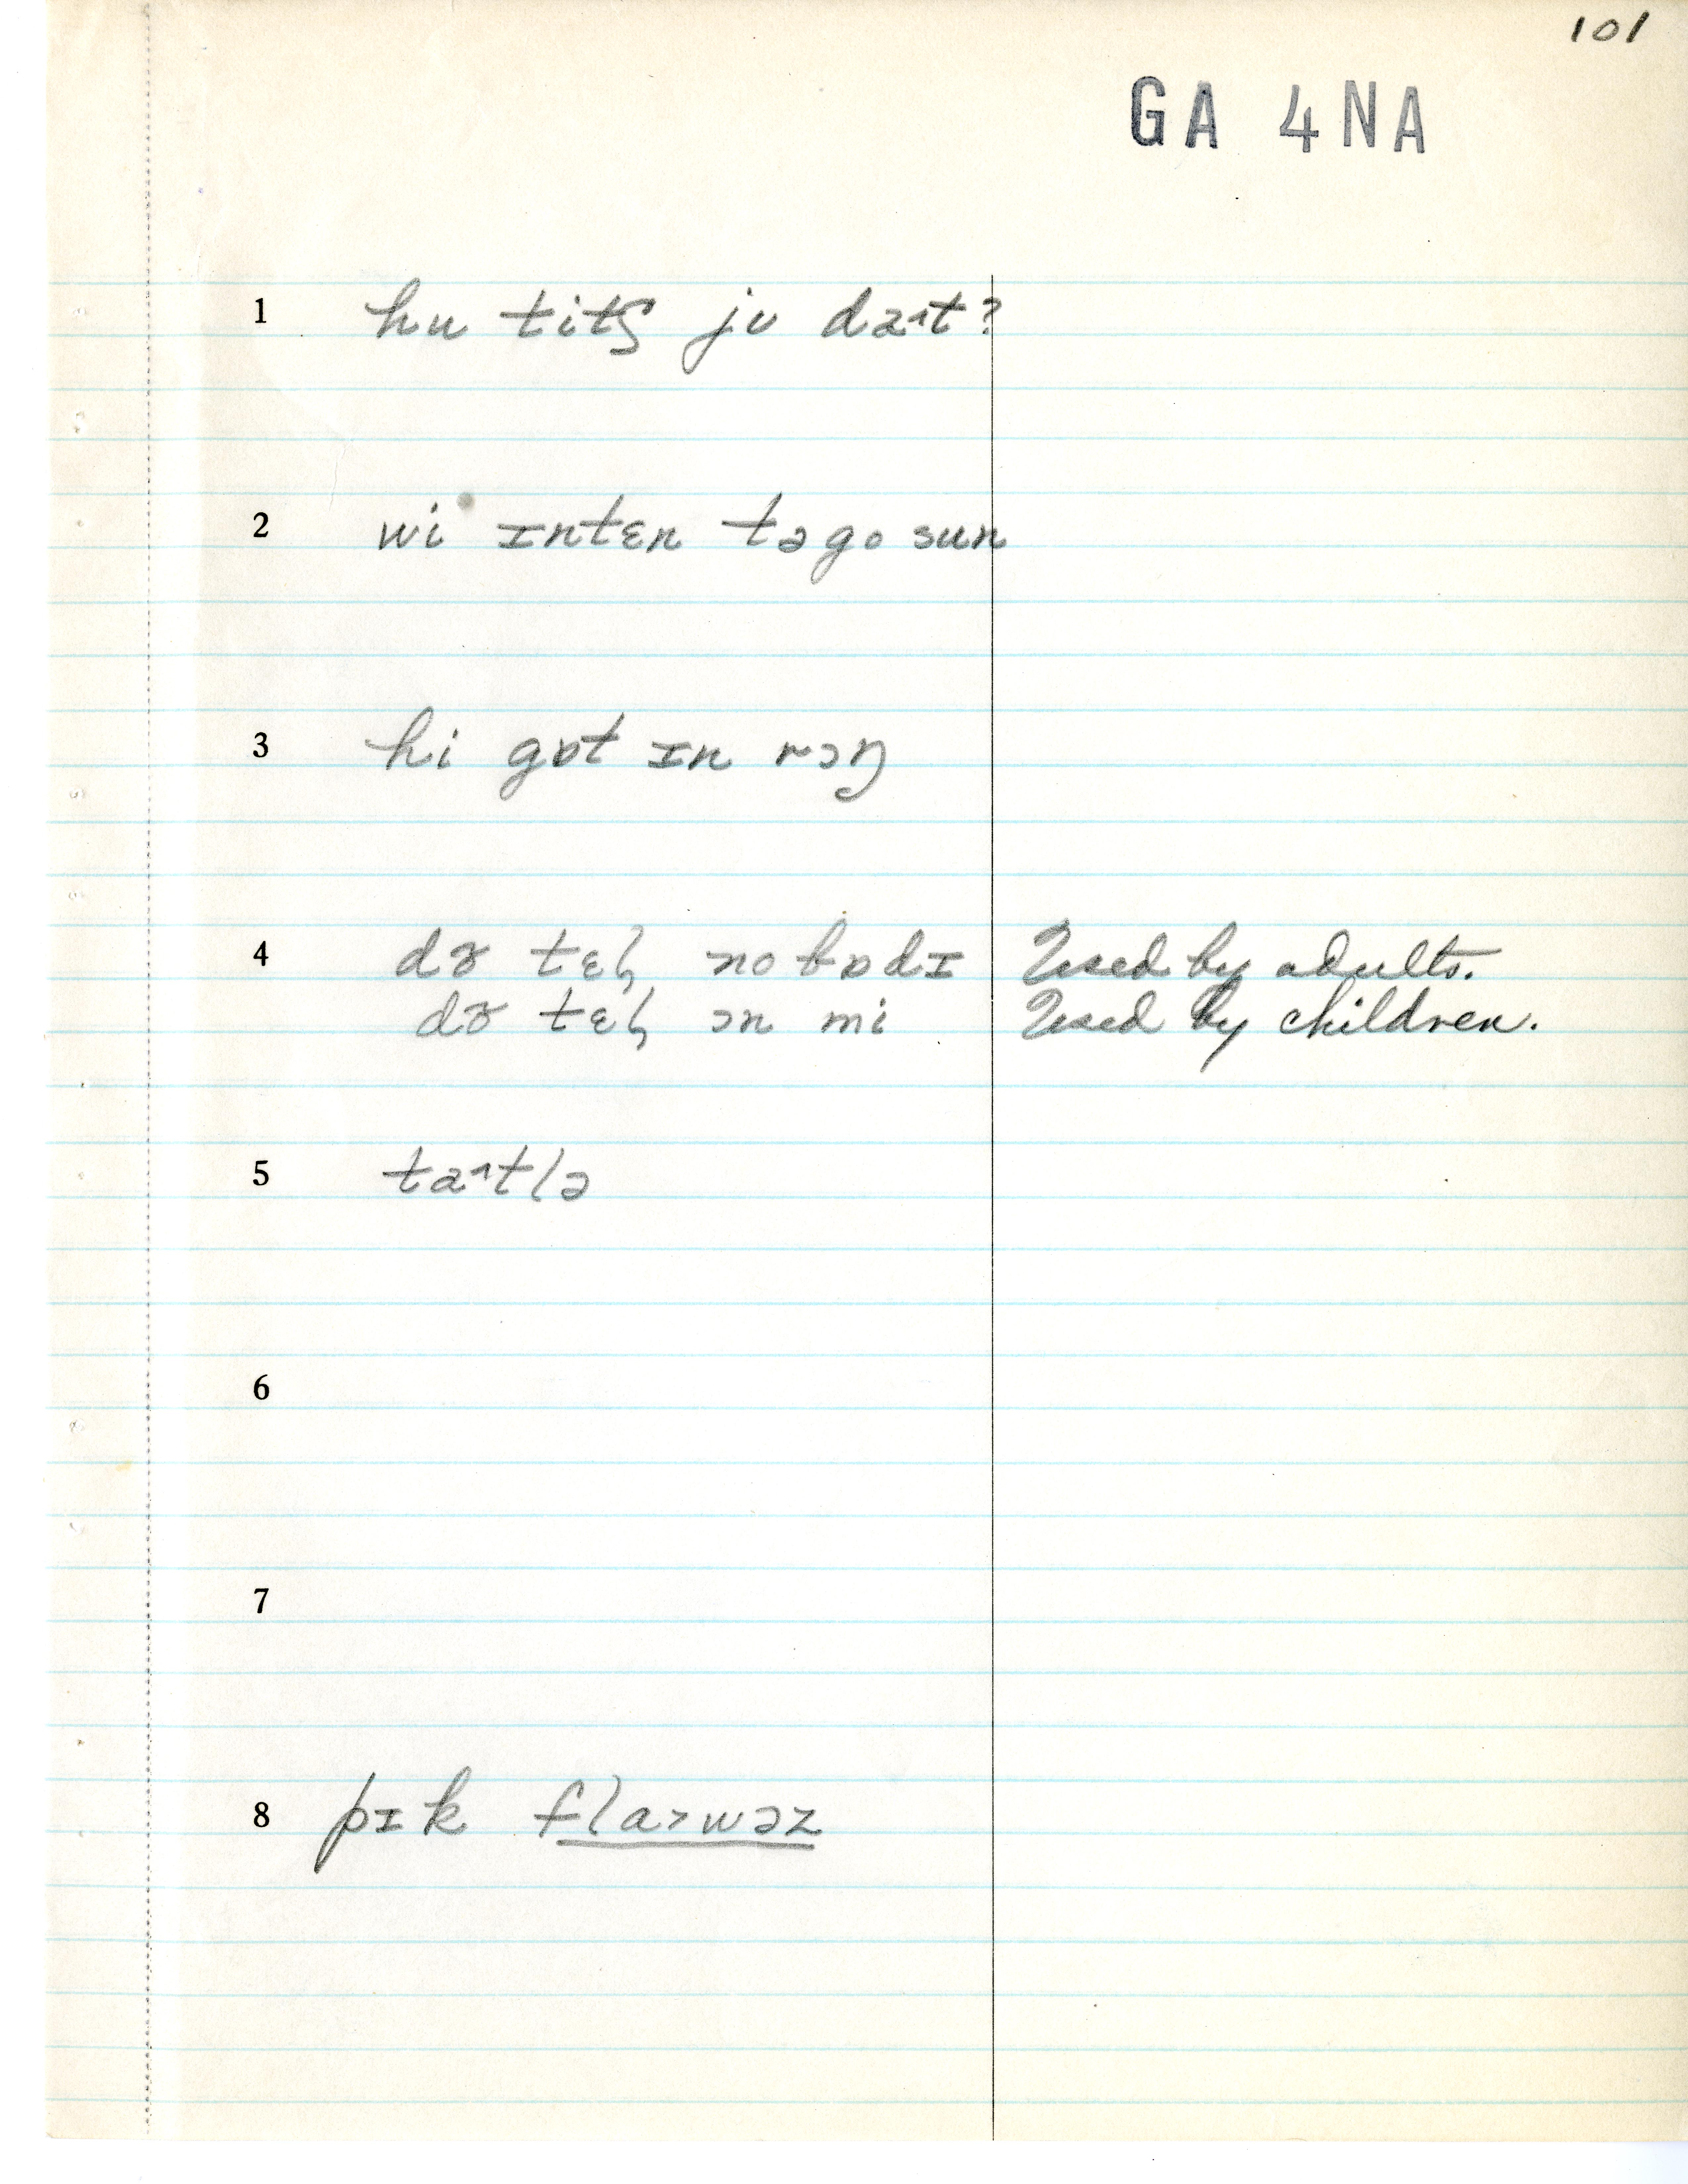 101
GA 4NA
1 hu titʃ jʊ daˆt?
2 wi ɪntɛn tə go sun
3 hi gɒt ɪn rɔŋ
4 doʊ tɛl̩ nobɒdɪ Used by adults.
doʊ tɛl̩ ɔn mi Used by children.
5 taˆtlə
6
7
8 pɪk fla>wəz